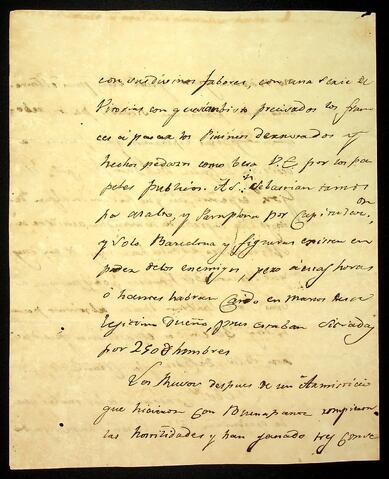 con sus divinos fabores, con una serie de
Vitorias con que an visto precisados los france
ces a pasar los Pirineos derrotados y
hechos pedazos como bera V.E. por los pa
peles publicos. A Sn. Sebastian tamos
por asalto, y Pamplona por Capitulacion
y solo Barcelona y Figueras existen en
poder de los enemigos, pero a esas horas
o habran Caido en manos de su
legitimo Dueño, pues estaban sitiadas
por 250 hombres
Los Rusos despues de un Armisticio
que hicieron con Buenaparte rompieron
las hostilidades y han ganado tres